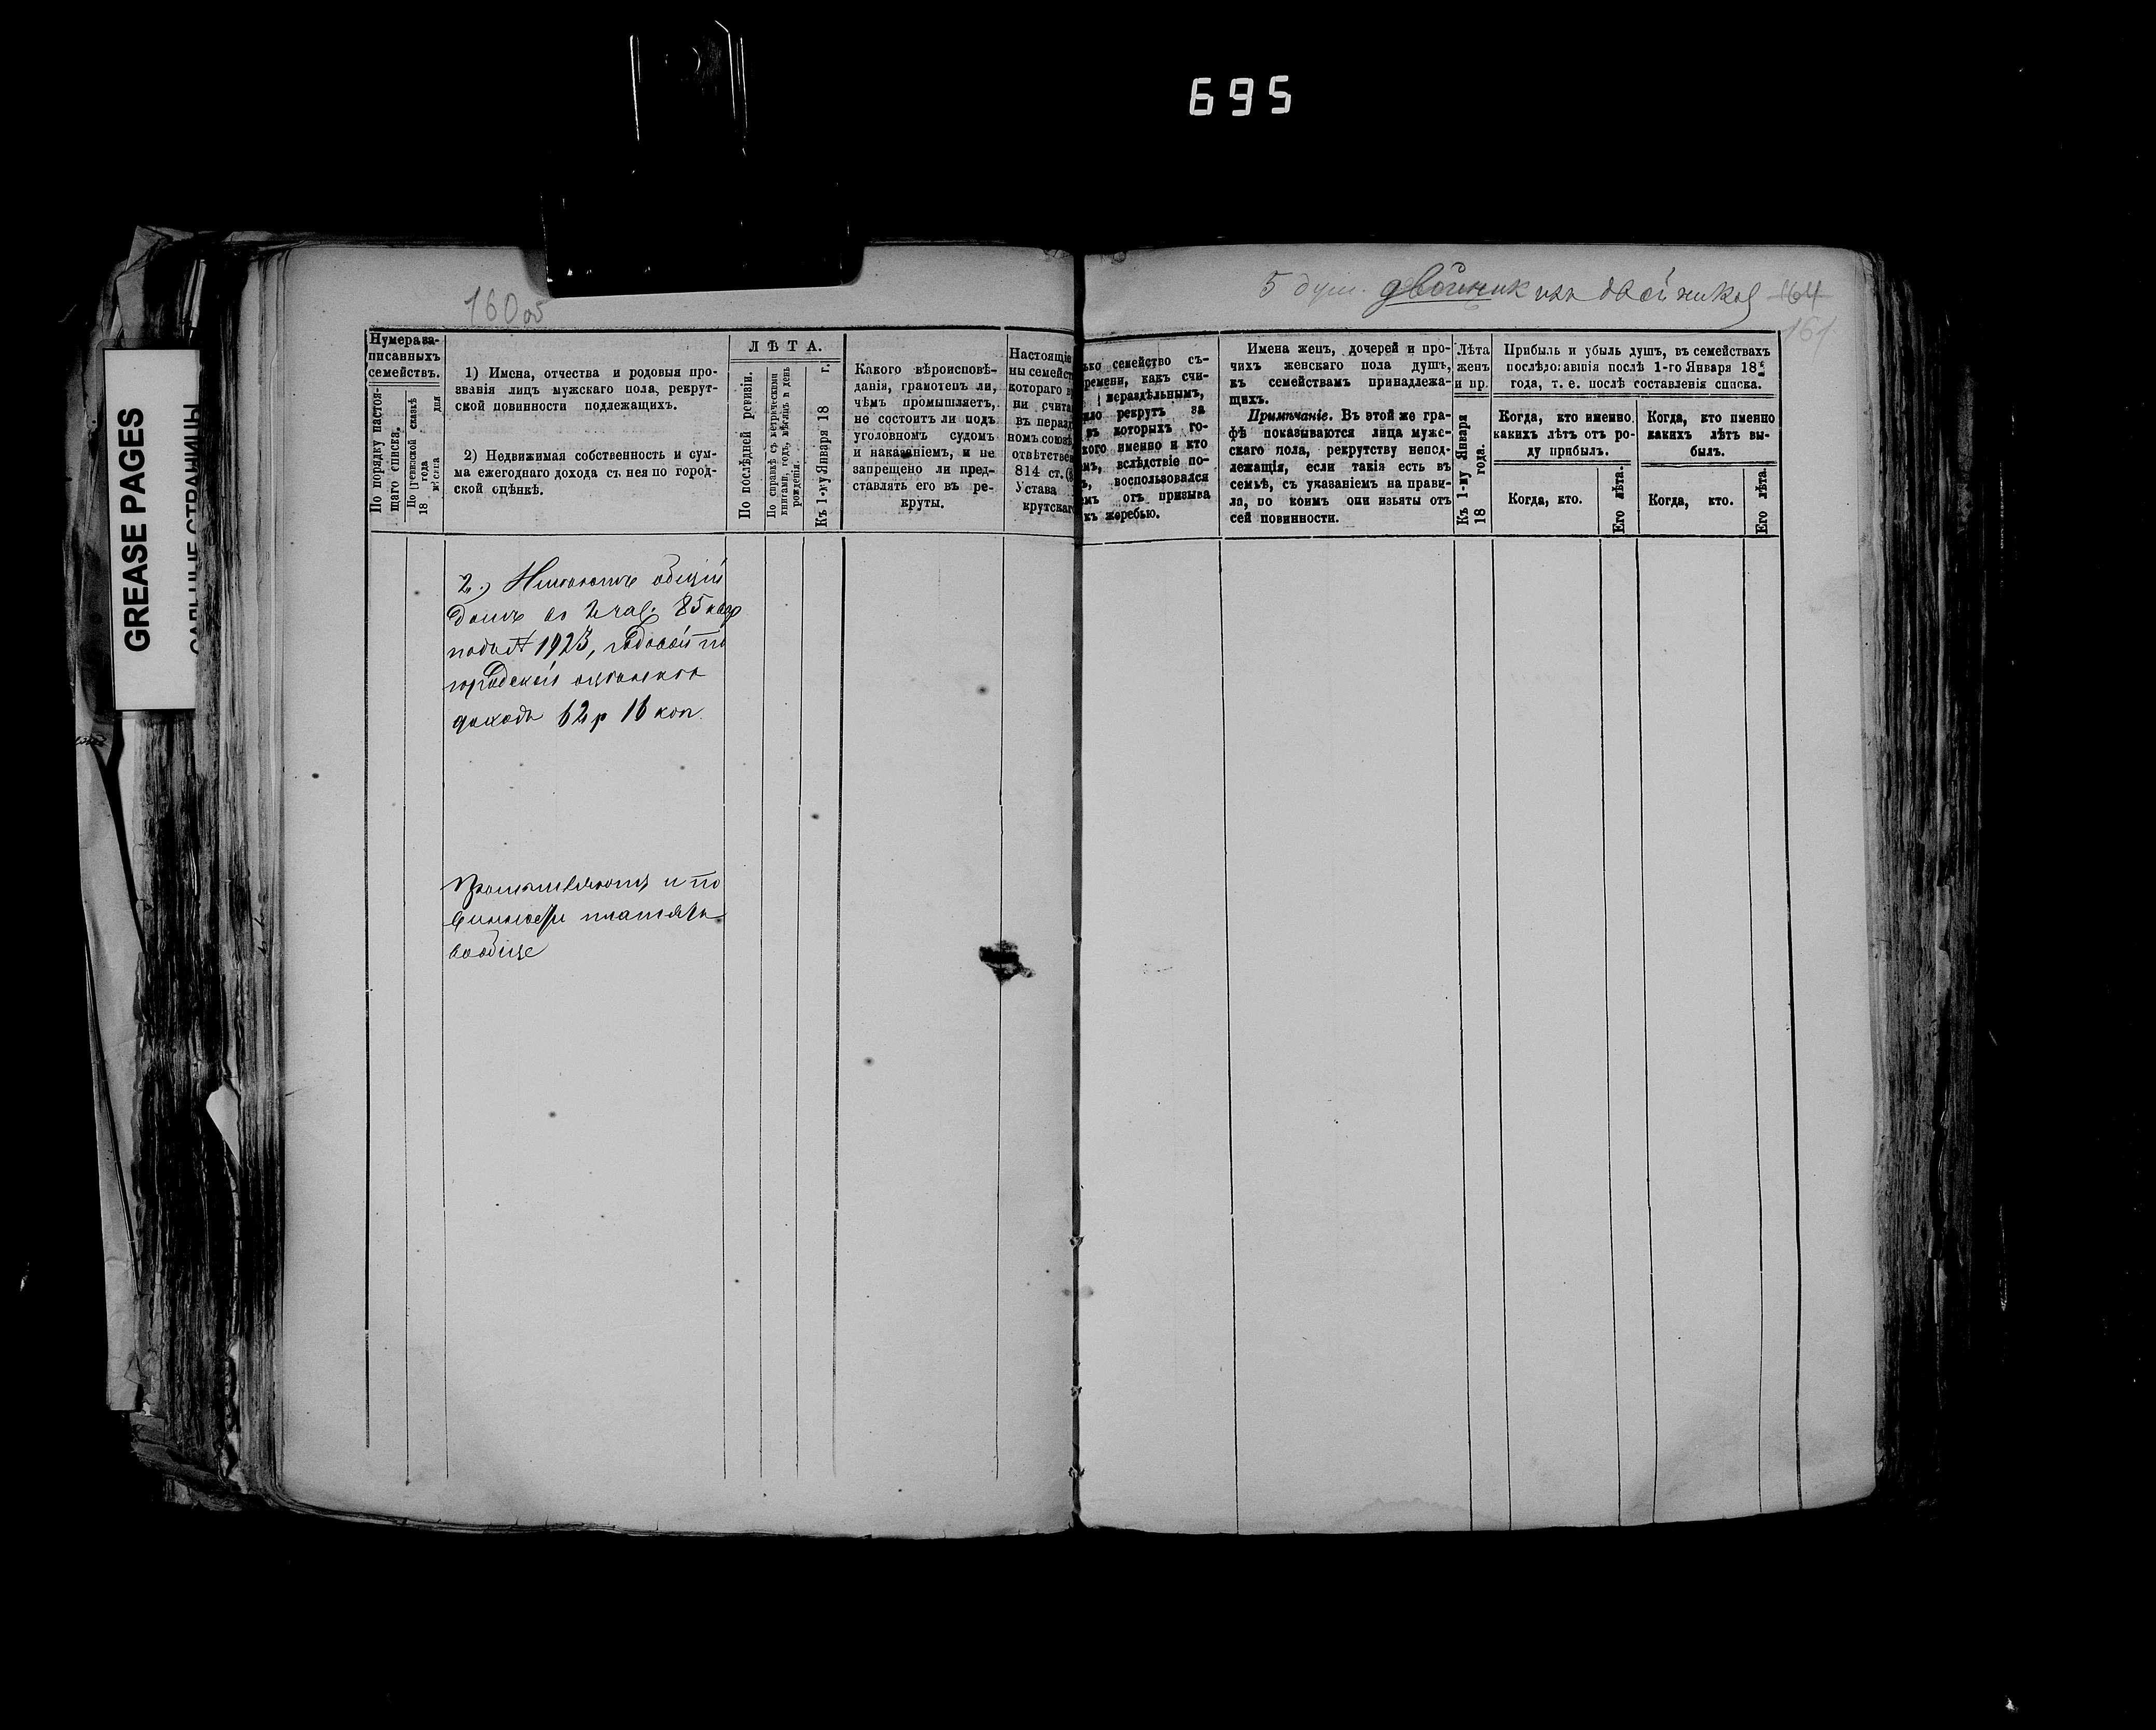 695
GREASE PAGES
160 об
5 душ. двойник изъ двойников
164
161
Нумера за-
писанныхъ
семействъ.
По порядку настоя-
щаго списка.
По ревизской сказкѣ
18 года
мѣсяца дня
1) Имена, отчества и родовыя про-
званія лицъ мужскаго пола, рекрут-
ской повинности подлежащихъ.
2) Недвижимая собственность и сум-
ма ежегоднаго дохода съ нея по город-
ской оцѣнкѣ.
ЛѢТА.
По послѣдней ревизіи.
По справкѣ съ метрическими
книгами, годъ, мѣсяцъ и день
рожденія.
Къ 1-му Января 18 г.
Какого вѣроисповѣ-
данія, грамотенъ ли,
чѣмъ промышляетъ,
не состоитъ ли подъ
уголовномъ судомъ
и наказаніемъ, и не
запрещено ли пред-
ставлять его въ ре-
круты.
Настоящіе
ны семейст
котораго в
ни счита
въ нераз
номъ союзѣ
отвѣтствен
814 ст.
Устава
крутскаго
ько семейство съ-
ремени, какъ счи-
нераздѣльнымъ,
ило рекрутъ за
въ которыхъ го-
кого именно и кто
мъ, вслѣдствіе по-
ъ, воспользовался
емъ отъ призыва
къ жеребью.
Имена женъ, дочерей и про-
чихъ женскаго пола душъ,
къ семействамъ принадлежа-
щихъ.
Примѣчаніе. Въ этой же гра-
фѣ показываются лица муже-
скаго пола, рекрутству непод-
лежащія, если такія есть въ
семьѣ, съ указаніемъ на прави-
ла, по коимъ они изъяты отъ
сей повинности.
Лѣта
женъ
и пр.
Къ 1-му Января
18 года.
Прибыль и убыль душъ, въ семействахъ
послѣдовавшія послѣ 1-го Января 18
года, т. е. послѣ составленія списка.
Когда, кто именно
какихъ лѣтъ отъ ро-
ду прибылъ.
Когда, кто.
Его лѣта.
Когда, кто именно
какихъ лѣтъ вы-
былъ.
Когда, кто.
Его лѣта.
2) Имѣютъ общій
домъ во 2 час. 85 квар
подъ № 1923, годовой по
городской оцѣнкѣ
доходъ 62 р 16 коп.
Промышляютъ и по
винности платятъ
вообще